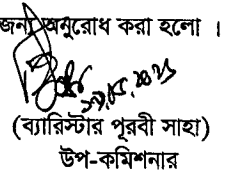 জন্য অনুরোধ করা হলো ।
(ব্যারিস্টার পূরবী সাহা)
উপ-কমিশনার